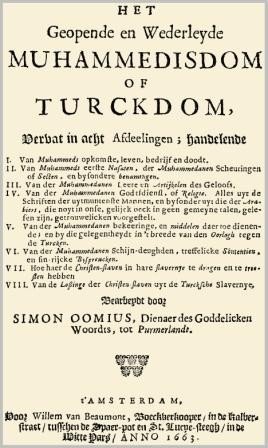 HET
Geopende en Wederleyde
MUHAMMEDISDOM
OF
TURCKDOM,
Vervat in acht Afdeelingen; handelende
I. Van Muhammeds opkomste, leven, bedrijf en doodt.
II. Van Muhammeds eerste Nasaten, der Muhammedanen Scheuringen
of Secten, en bysondere benamingen.
III. Van der Muhammedanen Leere en Artijkelen des Geloofs.
IV. Van der Muhammedanen Godtsdienst, of Religie. Alles uyt de
Schriften der uytnemenste Mannen, en bysonder uyt die der Ara-
biers, die noyt in onse, gelijck oock in geen gemeyne talen, gele-
sen zijn, getrouwelicken voorgestelt.
V. Van der Muhammedanen bekeeringe, en middelen daer toe dienen-
de; en by die gelegentheydt in't breede van den Oorlogh tegen
de Turcken.
VI. Van der Muhammedanen Schijn-deughden, treffelicke Sententien,
en sin-rijcke Byspraecken.
VII. Hoe haer de Christen-slaven in hare slavernye te dragen en te troo-
sten hebben
VIII. Van de Lossinge der Christen slaven uyt de Turcksche Slavernye,
Bearbeydt door
SIMON OOMIUS, Dienaer des Goddelicken
Woordts, tot Purmerlandt.
t'AMSTERDAM,
Voor Willem van Beaumont, Boeckverkooper, in de Kalver-
straat, tusschen de Spaer-pot en St. Lucye-steegh, in de
Witte Pars, ANNO 1663.